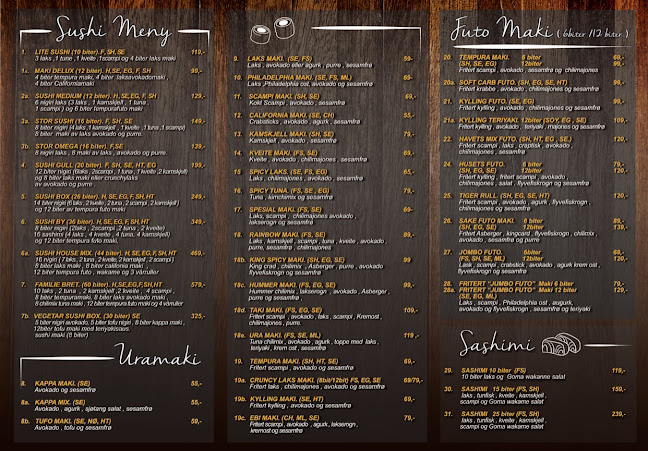 Sushi Meny
1. LITE SUSHI (10 biter). F, SH, SE 119,-
3 laks , 1 tuna , 1 kveite , 1scampi og 4 biter laks maki
1a. MAKI DELUX (12 biter). H, SE, EG, F, SH 99,-
4 biter tempuramaki, 4 biter laksavokadomaki,
4 biter Californiamaki
2a. SUSHI MEDIUM (12 biter). H, SE, EG, F, SH 129,-
6 nigiri laks (3 laks , 1 kamskjell , 1 tuna ,
1 scampi ) og 6 biter tempurafuto maki
3a. STOR SUSHI (16 biter). F, SH, SE 149,-
8 biter nigiri (4 laks , 1 kamskjell , 1 kveite , 1 tuna , 1 scampi)
8 biter maki av laks avokado og purre.
3b. STOR OMEGA (16 biter). F,SE 139,-
8 nigiri laks , 8 maki av laks avokado og purre.
4. SUSHI GULL (20 biter). F, SH, SE, HT, EG 199,-
12 biter nigiri (6laks , 2scampi , 1 tuna , 1 kveite , 2 kamskjell)
og 8 biter laks maki eller crunchylaks
av avokado og purre .
5. SUSHI BOX (26 biter). H, SE, EG, F, SH, HT 249,-
14 biter nigiri (6 laks , 2 kveite , 2 tuna , 2 scampi , 2 kamskjell)
og 12 biter av tempura futo maki
6. SUSHI BY (36 biter). H, SE, EG, F, SH, HT 349,-
8 biter nigiri (2laks , 2scampi , 2 tuna , 2 kveite)
16 sashimi (4 laks , 4 kveite , 4 tuna, 4 kamskjell)
og 12 biter tempura futo maki.
6a. SUSHI HOUSE MIX (44 biter). H, SE, EG, F, SH, HT 469,-
16 nigiri (7 laks , 2 tuna , 2 kveite , 3 scampi , 2 kamskjell ) ,
8 biter laks maki , 8 biter california maki ,
12 biter tempura futo , wakame og 3 vårruller
7. FAMILIE BRET. (50 biter). H,SE,EG,F,SH,HT 579,-
10 laks , 2 tuna , 2 kamskjell , 2 kveite , 4 scampi ,
8 biter tempuramaki, 8 biter laks avokado maki ,
8 chilimix tuna maki , 12 biter tempura futo maki og 4 vårruller
7b. VEGETAR SUSHI BOX. (30 biter) SE 325,-
5 biter nigiri avokado, 5 biter tofu nigiri , 8 biter kappa maki ,
12biter tofu maki med teriyakisaus.
sushi maki (8 biter)
Uramaki
8. KAPPA MAKI. (SE) 55,-
Avokado og sesamfrø
8a. KAPPA MIX. (SE) 55,-
Avokado , agurk , sjøtang salat , sesamfrø
8b. TUFO MAKI. (SE, NØ, HT) 59,-
Avokado , tofu og sesamfrø
9. LAKS MAKI. (SE, FS) 59-
Laks , avokado eller agurk , purre , sesamfrø
10. PHILADELPHIA MAKI. (SE, FS, ML) 69-
Laks ,Philadelphia ost ,avokado og sesamfrø
11. SCAMPI MAKI. (SH, SE) 69,-
Kokt Scampi , avokado , sesamfrø
12. CALIFORNIA MAKI. (SE, CH) 55,-
Crabsticks , avokado , agurk , sesamfrø
13. KAMSKJELL MAKI. (SH, SE) 79,-
Kamskjell , avokado , sesamfrø
14. KVEITE MAKI. (FS, SE) 69,-
Kveite , avokado , chilimajones , sesamfrø
15. SPICY LAKS. (SE, FS, EG) 65,-
Laks , chilimajones , avokado , sesamfrø
16. SPICY TUNA. (FS, SE , EG) 79,-
Tuna , kimchimix , avokado og sesamfrø
17. SPESIAL MAKI. (FS, SE) 79,-
Laks , scampi , chilimajones avokado
lakserogn og sesamfrø
18. RAINBOW MAKI. (FS, SE) 89,-
Laks , kamskjell , scampi , tuna , kveite , avokado ,
purre, sesamfrø chilimajones.
18b. KING SPICY MAKI. (SH, SE, EG) 99,-
King crad , chilimix , avokado , purre , avokado
flyvefiskrogn og sesamfrø
18c. HUMMER MAKI. (FS, SE) 99,-
Hummer chilimix , lakserogn , avokado , Asberger
, purre og sesamfrø
18d. TAKI MAKI. (FS, SE, EG) 109,-
Fritert scampi , avokado , laks , scampi , Kremost ,
chilimajones , purre.
18e. URA MAKI. (FS, SE, ML) 119,-
Tuna chilimix , avokado , agurk , toppe med laks ,
teriyaki , krem ost , sesamfrø .
19. TEMPURA MAKI. (SH, HT, SE) 69,-
Fritert scampi , avokado og sesamfrø
19a. CRUNCY LAKS MAKI. (8bit/12bit) FS, EG, SE 69/79,-
Fritert laks , chilimajones , avokado og sesamfrø
19b. KYLLING MAKI. (SE, HT) 69,-
Fritert kylling , avokado og sesamfrø
19c. EBI MAKI (CH, ML, SE) 79,-
Fritert scampi , avokado , agurk, lakserogn ,
kremost og sesamfrø
Futo Maki ( 6biter /12 biter )
20. TEMPURA MAKI. 6 biter 69,-
(SH, SE, EG) 12biter 99,-
Fritert scampi , avokado , sesamfrø og chilimajones
20a. SOFT CARB FUTO. (SH, EG, SE, HT) 129,-
Fritert krabbe , avokado , chilimajones , sesamfrø
21. KYLLING FUTO. (SE, EG) 99,-
Fritert kylling , avokado , sesamfrø , chilimajones
21a. KYLLING TERIYAKI. 12biter (SOY, EG , SE) 109,-
Fritert kylling , avokado , teriyaki , majones og sesamfrø
22. HAVETS MIX FUTO. (SH, HT, EG , SE.) 129,-
Fritert scampi , laks , craptisk , avokado ,
chilimajones , sesamfrø
24. HUSETS FUTO. 6 biter 79,-
(SH, EG, SE) 12biter 120,-
Fritert kylling , fritert scampi , avokado ,
chilimajones , salat , flyvefiskrogn og sesamfrø
25. TIGER RULL. (SH, EG, SE, HT) 129,-
Fritert scampi , avokado , agurk , flyvefiskrogn ,
chilimajones , sesamfrø
26. SAKE FUTO MAKI. 6 biter 89,-
(SH, EG, SE) 12biter 139,-
Fritert Asberger , kingcard , flyvefiskrogn , chilimix ,
avokado , sesamfrø og purre
27. JOMBO FUTO. 6biter 69,-
(FS, SH, SE, ML) 12biter 120,-
Lask , scampi , crabstick , avokado , agurk krem ost ,
flyvefiskrogn og sesamfrø
28. FRITERT "JUMBO FUTO" Maki 6 biter 79,-
28a. FRITERT "JUMBO FUTO" Maki 12 biter 129,-
(SH, EG, SE, ML)
Laks , scampi , Philadelphia ost , augurk ,
avokado og flyvefiskrogn og sesamfrø
Sashimi
29. SASHIMI 10 biter (FS) 119,-
10 biter laks og Goma wakanne salat
30. SASHIMI 15 biter (FS, SH) 159,-
laks , tunfisk , kveite , kamskjell ,
scampi og Goma wakame salat
31. SASHIMI 25 biter (FS, SH) 239,-
laks , tunfisk , kveite , kamskjell ,
scampi og Goma wakame salat